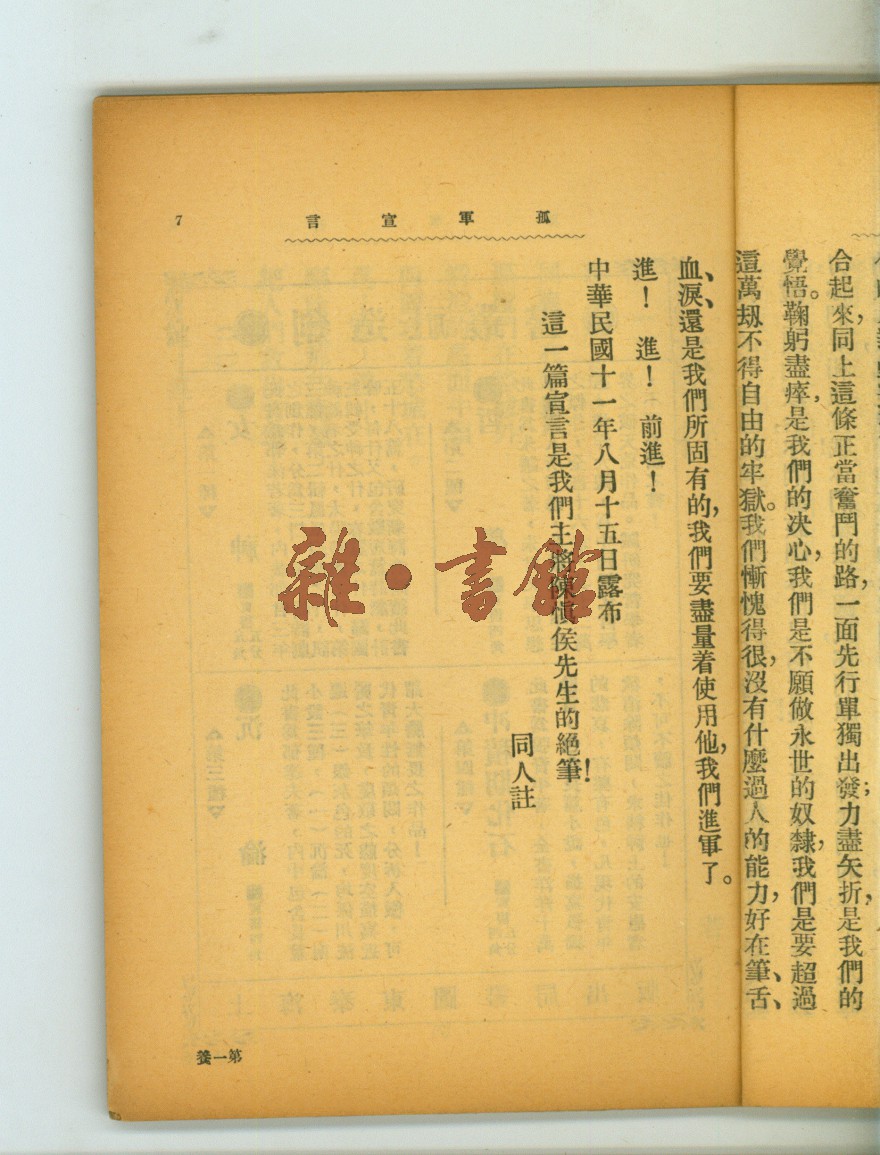 孤軍宣言
7
合起來，同上這條正當奮鬥的路，一面先行單獨出發；力盡矢折，是我們的
覺悟。鞠躬盡瘁，是我們的決心，我們是不願做永世的奴隸，我們是要超過
這萬刼不得自由的牢獄。我們慚愧得很，沒有什麼過人的能力，好在筆、舌、
血、淚、還是我們所固有的，我們要盡量着使用他，我們進軍了。
進！　進！　前進！
中華民國十一年八月十五日露布
這一篇宣言是我們主將陳慎侯先生的絕筆！
同人註
第一養
雜·書館